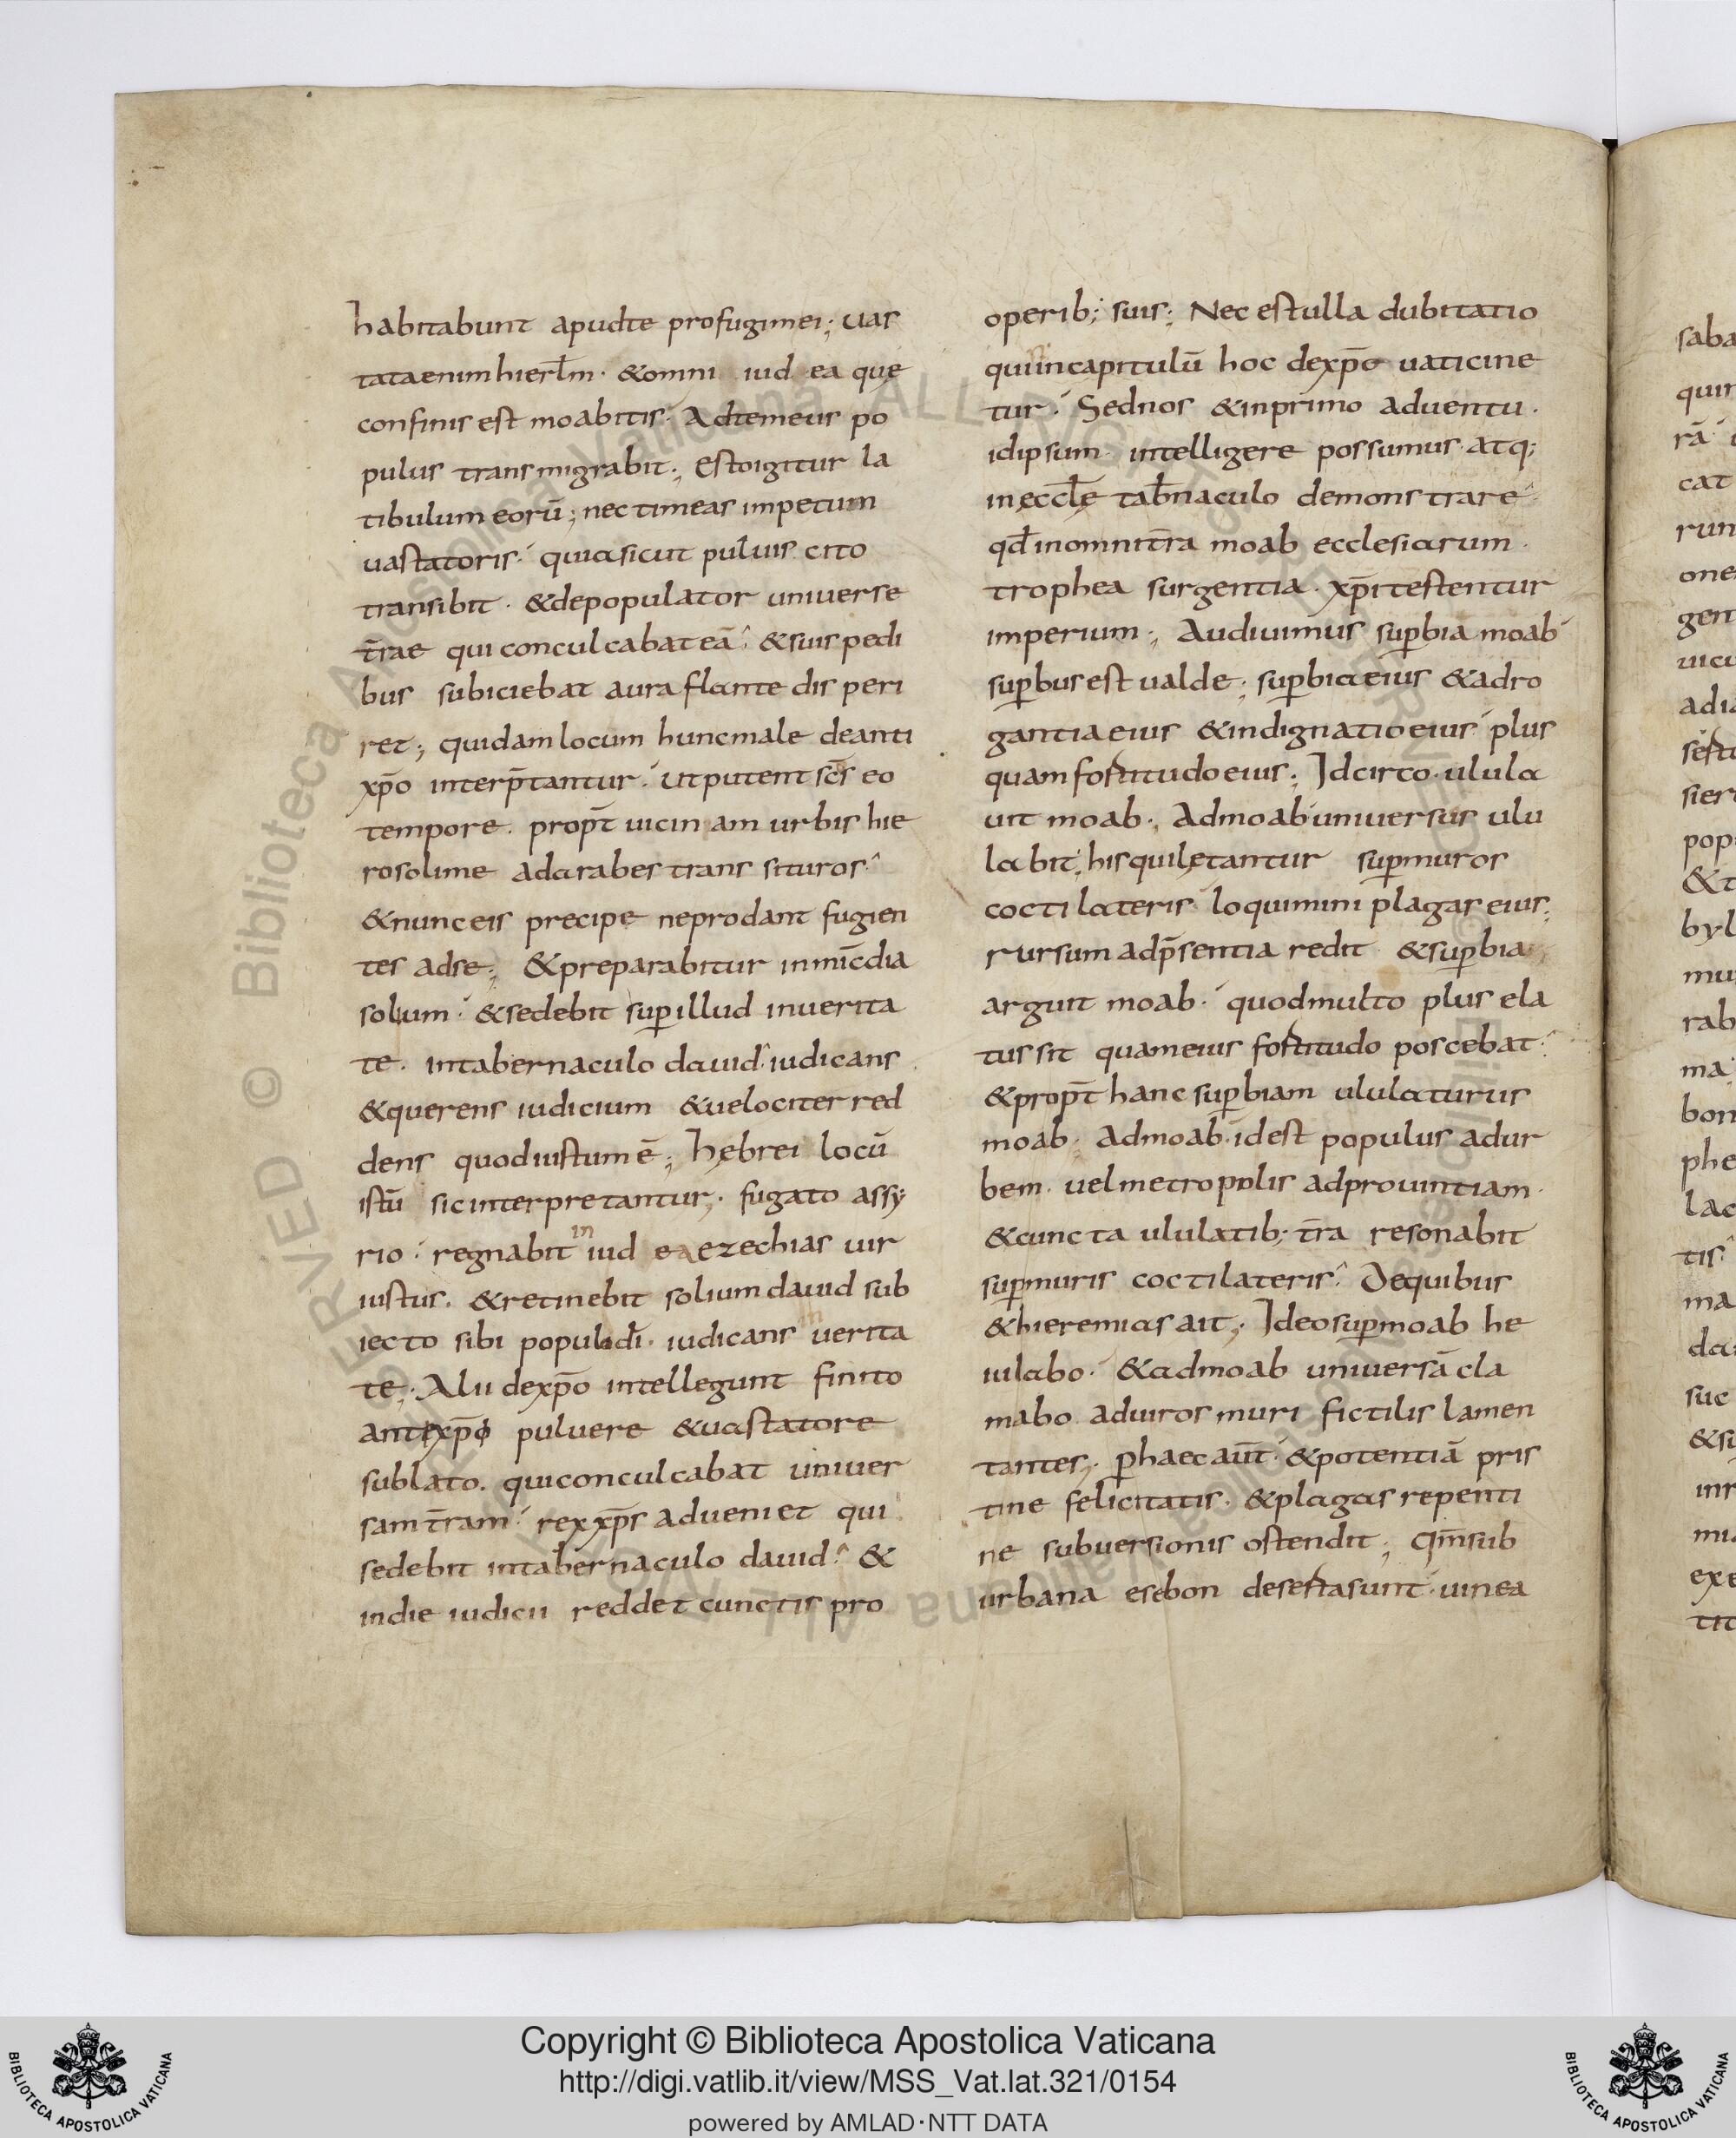 habitabunt apudte profugimei; uas
tataenimhierl̄m · &omni iud ea que
confinis est moabitis · Adtemeus po
pulus transmigrabit; Estoigitur la
tibulum eorū; nec timeas impetum
uastatoris · quiasicut puluis cito
transibit · &depopulator uniuerse
t̄rae qui conculcabateā · &suis pedi
bus subiciebat aura flante disperi
ret; quidam locum huncmale deanti
xp̄o interp̄tantur · Utputent sc̄s eo
tempore · propt̄ uicin am urbis hie
rosolime adarabes trans situros
&nunceis precipe neprodant fugien
tes adse; &preparabitur inmīcdia
solium · &sedebit sup illud inuerita
te · intabernaculo dauid iudicans
&querens iudicium &uelociter red
dens quodiustum ē; hębrei locū
istū sicinterpretantur · fugato assy
rio · regnabit in iud ea ezechias uir
iustus · &retinebit solium dauid sub
iecto sibi populo dī · iudicans in uerita
te; Alii dexp̄o intellegunt finito
antexp̄o puluere &uastatore
sublato · quiconculcabat uniuer
sam t̄ram · rexxp̄s adueniet qui
sedebit intabernaculo dauid · &
indie iudicii reddet cunctis pro
operib; suis; Nec est ulla dubitatio
quin incapitulū hoc dexp̄o uaticine
tur · Sednos &inprimo aduentu ·
idipsum intelligere possumus · atq;
ineccl̄e tab̄naculo demonstrare
qd̄ inomnit̄ra moab ecclesiarum ·
trophea surgentia · xp̄i testentur
imperium; Audiuimus sup̄bia moab
sup̄bus est ualde; sup̄bia eius &adro
gantia eius &indignatio eius plus
quam fortitudo eius; Idcirco ulula
uit moab; Admoab uniuersus ulu
labit; hisquilętantur sup̄muros
coctilateris loquimini plagas eius;
rursum adp̄sentia redit &sup̄bia
arguit moab · quodmulto plus ela
tus sit quameius fortitudo poscebat
&propt̄ hanc sup̄biam ululaturus
moab · Admoab · idest populus adur
bem · uel metropolis adprouintiam ·
&cuncta ululatib; t̄ra resonabit
sup̄muris coctilateris · Dequibus
&hieremias ait; Ideosup̄moab he
iulabo · &admoab uniuersā cla
mabo aduiros muri fictilis lamen
tantes; p̄haec aūt · &potentiā pris
tine felicitatis · &plagas repenti
ne subuersionis ostendit; Qm̄sub
urbana esebon desertasunt · uinea
Copyright © Biblioteca Apostolica Vaticana
http://digi.vatlib.it/view/MSS_Vat.lat.321/0154
powered by AMLAD·NTT DATA
BIBLIOTECA APOSTOLICA VATICANA
BIBLIOTECA APOSTOLICA VATICANA